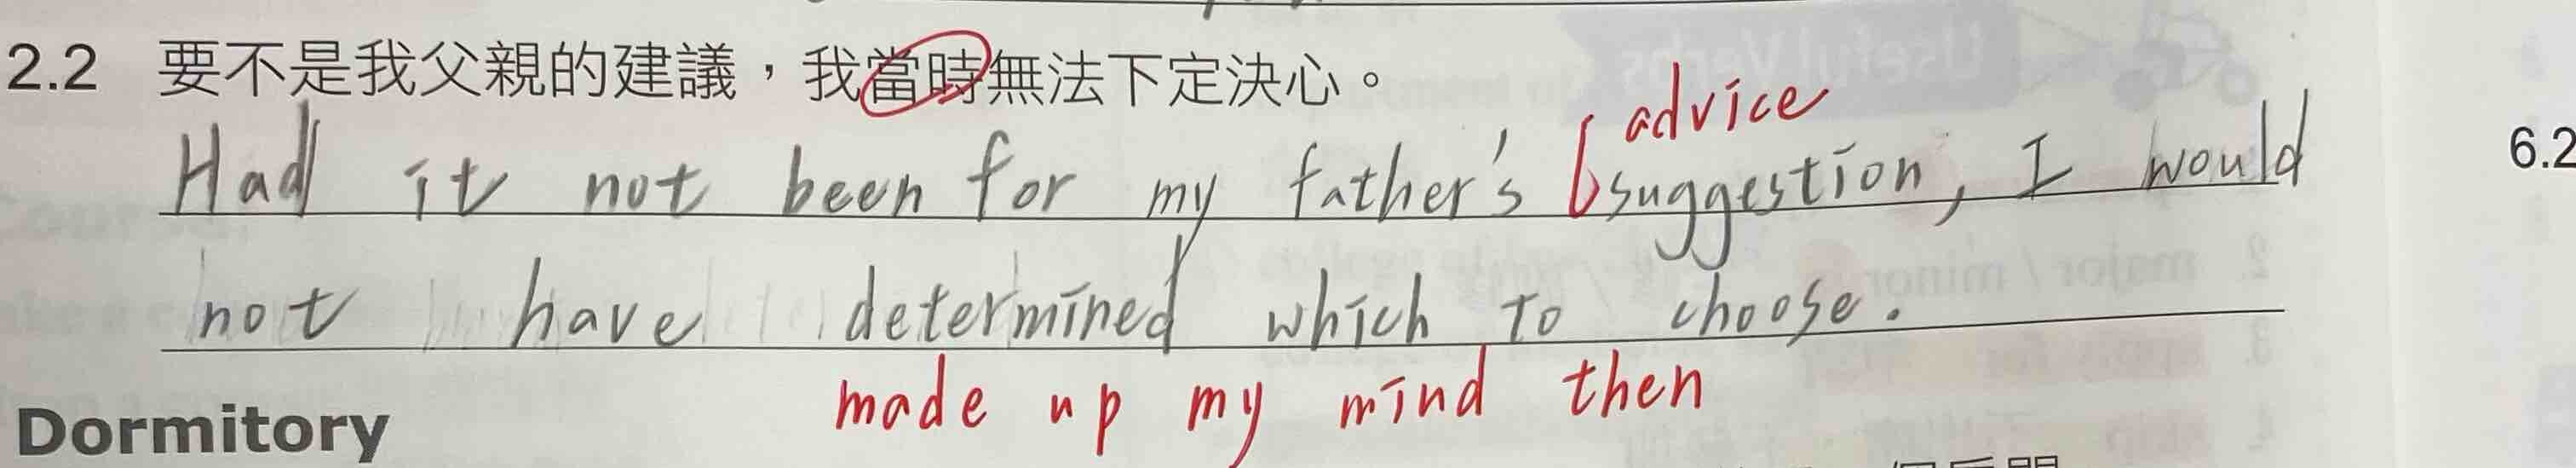 2.2 要不是我父親的建議，我當時無法下定決心。
advice
Had it not been for my father's suggestion, I would
6.2
not have determined which to choose.
made up my mind then
Dormitory